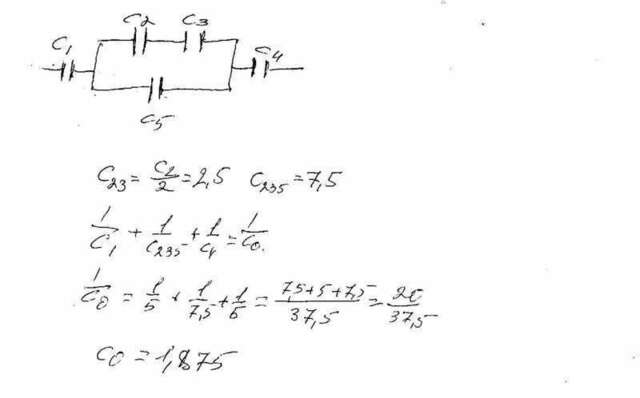 C2 C3
C1 C4
C5
C23 = C2/2 = 2,5 C235 = 7,5
1/C1 + 1/C235 + 1/C4 = 1/C0.
1/C0 = 1/5 + 1/7,5 + 1/5 = 7,5+5+7,5/37,5 = 20/37,5
C0 = 1,875